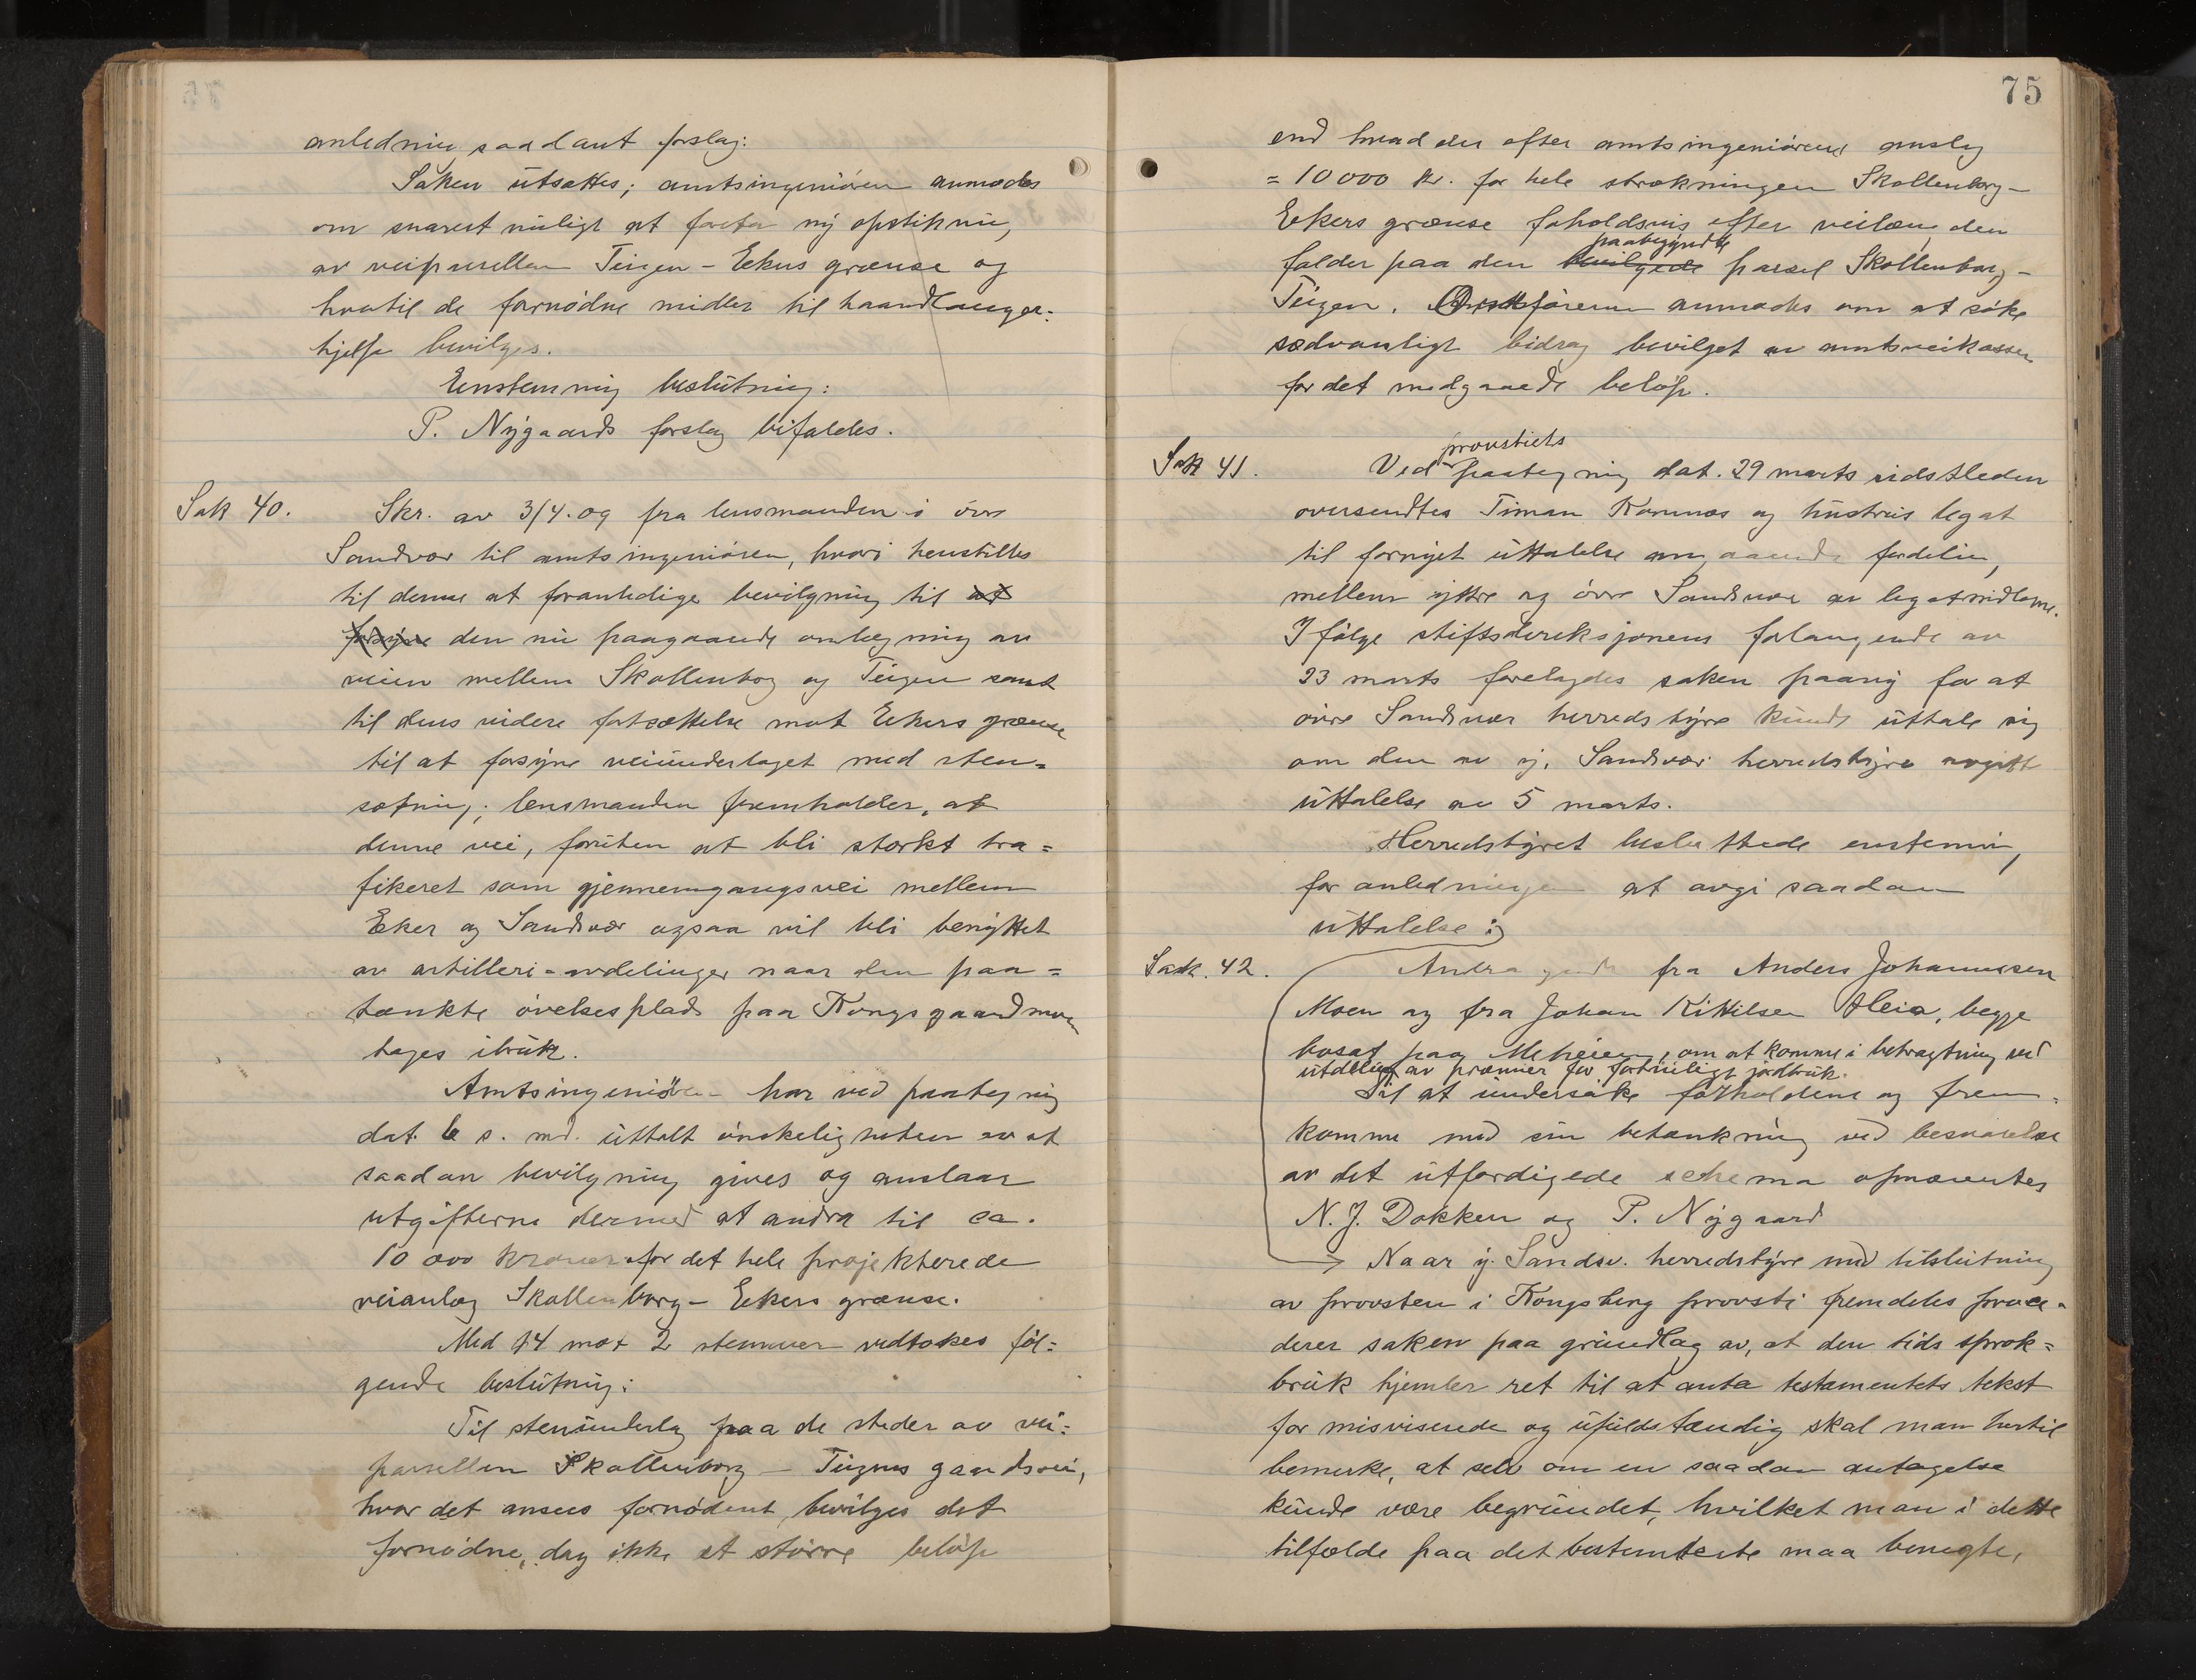 anledning saadant forslag:
Saken utsættes; amtsingeniøren anmodes
om snarest muligt at foreta ny opstikning
av veiparsellen Teigen – Ekers grænse og
hvortil de fornødne midler til haandlanger-
hjelp bevilges.
Enstemmig beslutning:
P. Nygaards forslag bifaldes.
Sak 40. Skr. av 3/4. 09 fra lensmanden i øvre
Sandsvær til amtsingeniøren, hvori henstilles
til denne at foranledige bevilgning til at
forsyne den nu paagaaende omlægning av
veien mellem Skollenborg og Teigen samt
til dens videre fortsættelse mot Ekers grænse
til at forsyne veiunderlaget med sten=
sætning; lensmanden fremholder, at
denne vei, foruten at bli sterkt tra=
fikeret som gjennemgangsvei mellem
Eker og Sandsvær ogsaa vil bli benyttet
av artilleri-avdelinger naar den paa=
tænkte øvelsesplads paa Kongsgaardmoen
tages ibruk.
Amtsingeniøren har ved paategning
dat. 6 s. md. uttalt ønskeligheten av at
saadan bevilgning gives og anslaar
utgifterne dermed at andra til ca.
10 000 kroner for det hele projekterede
veianlæg Skollenborg – Ekers grænse.
Med 14 mot 2 stemmer vedtokes føl=
gende beslutning:
Til stenunderlag paa de steder av vei=
parsellen Skollenborg – Teigens gaardsvei,
hvor det ansees fornødent, bevilges det
fornødne, dog ikke et større beløp
75
end hvad der efter amtsingeniørens anslag
= 10000 kr. for hele strækningen Skollenborg –
Ekers grænse forholdsvis efter veilængden
paabegyndte
falder paa den bevilgede parsel Skollenborg –
Teigen. Ordføreren anmodes om at søke
sedvanligt bidrag bevilget av amtsveikassen
for det medgaaede beløp.
provstiets
Sak 41. Ved paategning dat. 29 marts sidstleden
oversendtes Timan Komnæs og hustrus legat
til fornyet uttalelse angaaende fordeling
mellem ytre og øvre Sandsvær av legatmidlerne.
Ifølge stiftsdireksjonens forlangende av
23 marts forelagdes saken paany for at
øvre Sandsvær herredstyre kunde uttale sig
om den av y. Sandsvær herredstyre avgitt
uttalelse av 5 marts.
Herredstyret besluttede enstemmig
for anledningen at avgi saadan
uttalelse:
Sak. 42. Andragende fra Anders Johannessen
Moen og fra Johan Kittilsen Heia, begge
bosat paa Meheien, om at komme i betragtning ved
utdeling av præmier for fortrinligt jordbruk.
Til at undersøke forholdene og frem=
komme med sin betænkning ved besvarelse
av det utfærdigede schema opnævntes
N. J. Dokken og P. Nygaard
Naar y. Sandsv. herredstyre med tilslutning
av provsten i Kongsberg provsti fremdeles proce=
derer saken paa grundlag av, at den tids sprok=
bruk hjemler ret til at anta testamentets tekst
for misvisende og ufuldstændig skal man hertil
bemerke, at selv om en saadan antagelse
kunde være begrundet, hvilket man i dette
tilfælde paa det bestemteste maa benegte,